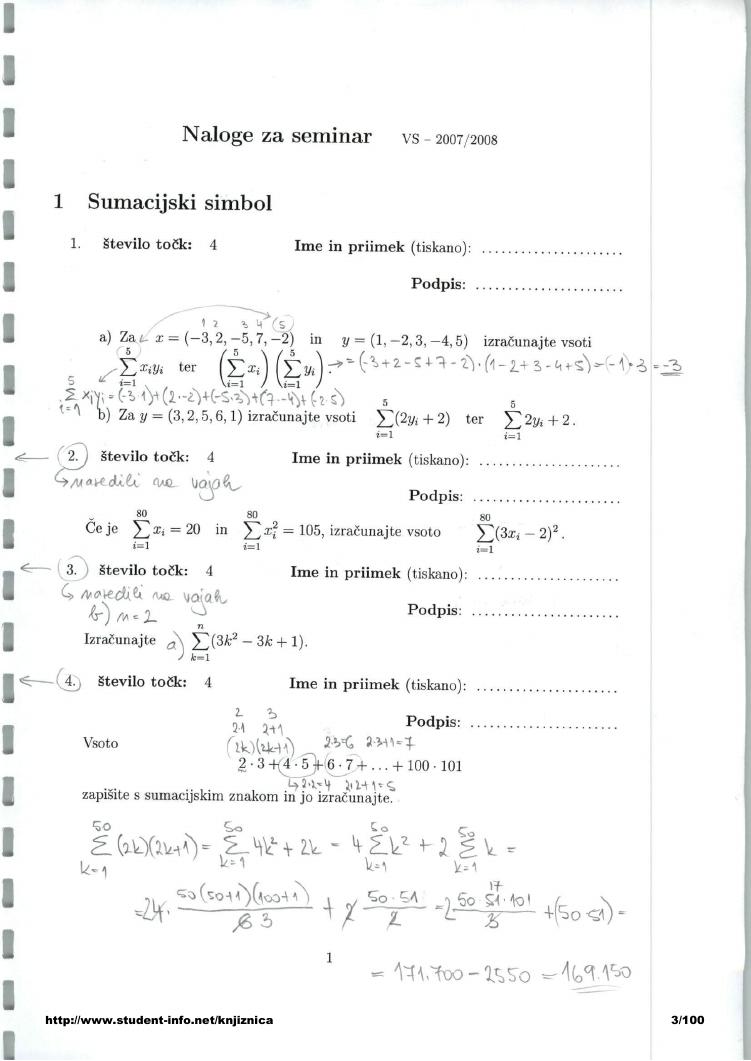 Naloge za seminar VS – 2007/2008
1 Sumacijski simbol
1. število točk: 4 Ime in priimek (tiskano): ......................
Podpis: ......................
1 2 3 4 5
a) Za x = (−3, 2, −5, 7, −2) in y = (1, −2, 3, −4, 5) izračunajte vsoti
∑_{i=1}^{5} x_i y_i ter (∑_{i=1}^{5} x_i)(∑_{i=1}^{5} y_i). → = (-3+2-5+7-2)·(1-2+3-4+5) = (-1)·3 = -3
∑_{i=1}^{5} x_i y_i = (-3·1)+(2·-2)+(-5·3)+(7·-4)+(-2·5)
b) Za y = (3, 2, 5, 6, 1) izračunajte vsoti ∑_{i=1}^{5} (2y_i + 2) ter ∑_{i=1}^{5} 2y_i + 2.
← 2. število točk: 4 Ime in priimek (tiskano): ......................
↳ naredili na vajah
Podpis: ......................
Če je ∑_{i=1}^{80} x_i = 20 in ∑_{i=1}^{80} x_i² = 105, izračunajte vsoto ∑_{i=1}^{80} (3x_i − 2)².
← 3. število točk: 4 Ime in priimek (tiskano): ......................
↳ naredili na vajah
b) n=2 Podpis: ......................
Izračunajte a) ∑_{k=1}^{n} (3k² − 3k + 1).
← 4. število točk: 4 Ime in priimek (tiskano): ......................
2 3
2·1 2+1 Podpis: ......................
Vsoto (2k)(2k+1) 2·3=6 2·3+1=7
2 · 3 + 4 · 5 + 6 · 7 + ... + 100 · 101
↳ 2·2=4 2·2+1=5
zapišite s sumacijskim znakom in jo izračunajte.
∑_{k=1}^{50} (2k)(2k+1) = ∑_{k=1}^{50} 4k² + 2k = 4 ∑_{k=1}^{50} k² + 2 ∑_{k=1}^{50} k =
= 24· 50(50+1)(100+1) / 6 3 + 2 50·51 / 2 = 2 50·51·101 17 / 3 + (50·51) =
1
= 171.700 - 2550 = 169.150
http://www.student-info.net/knjiznica 3/100